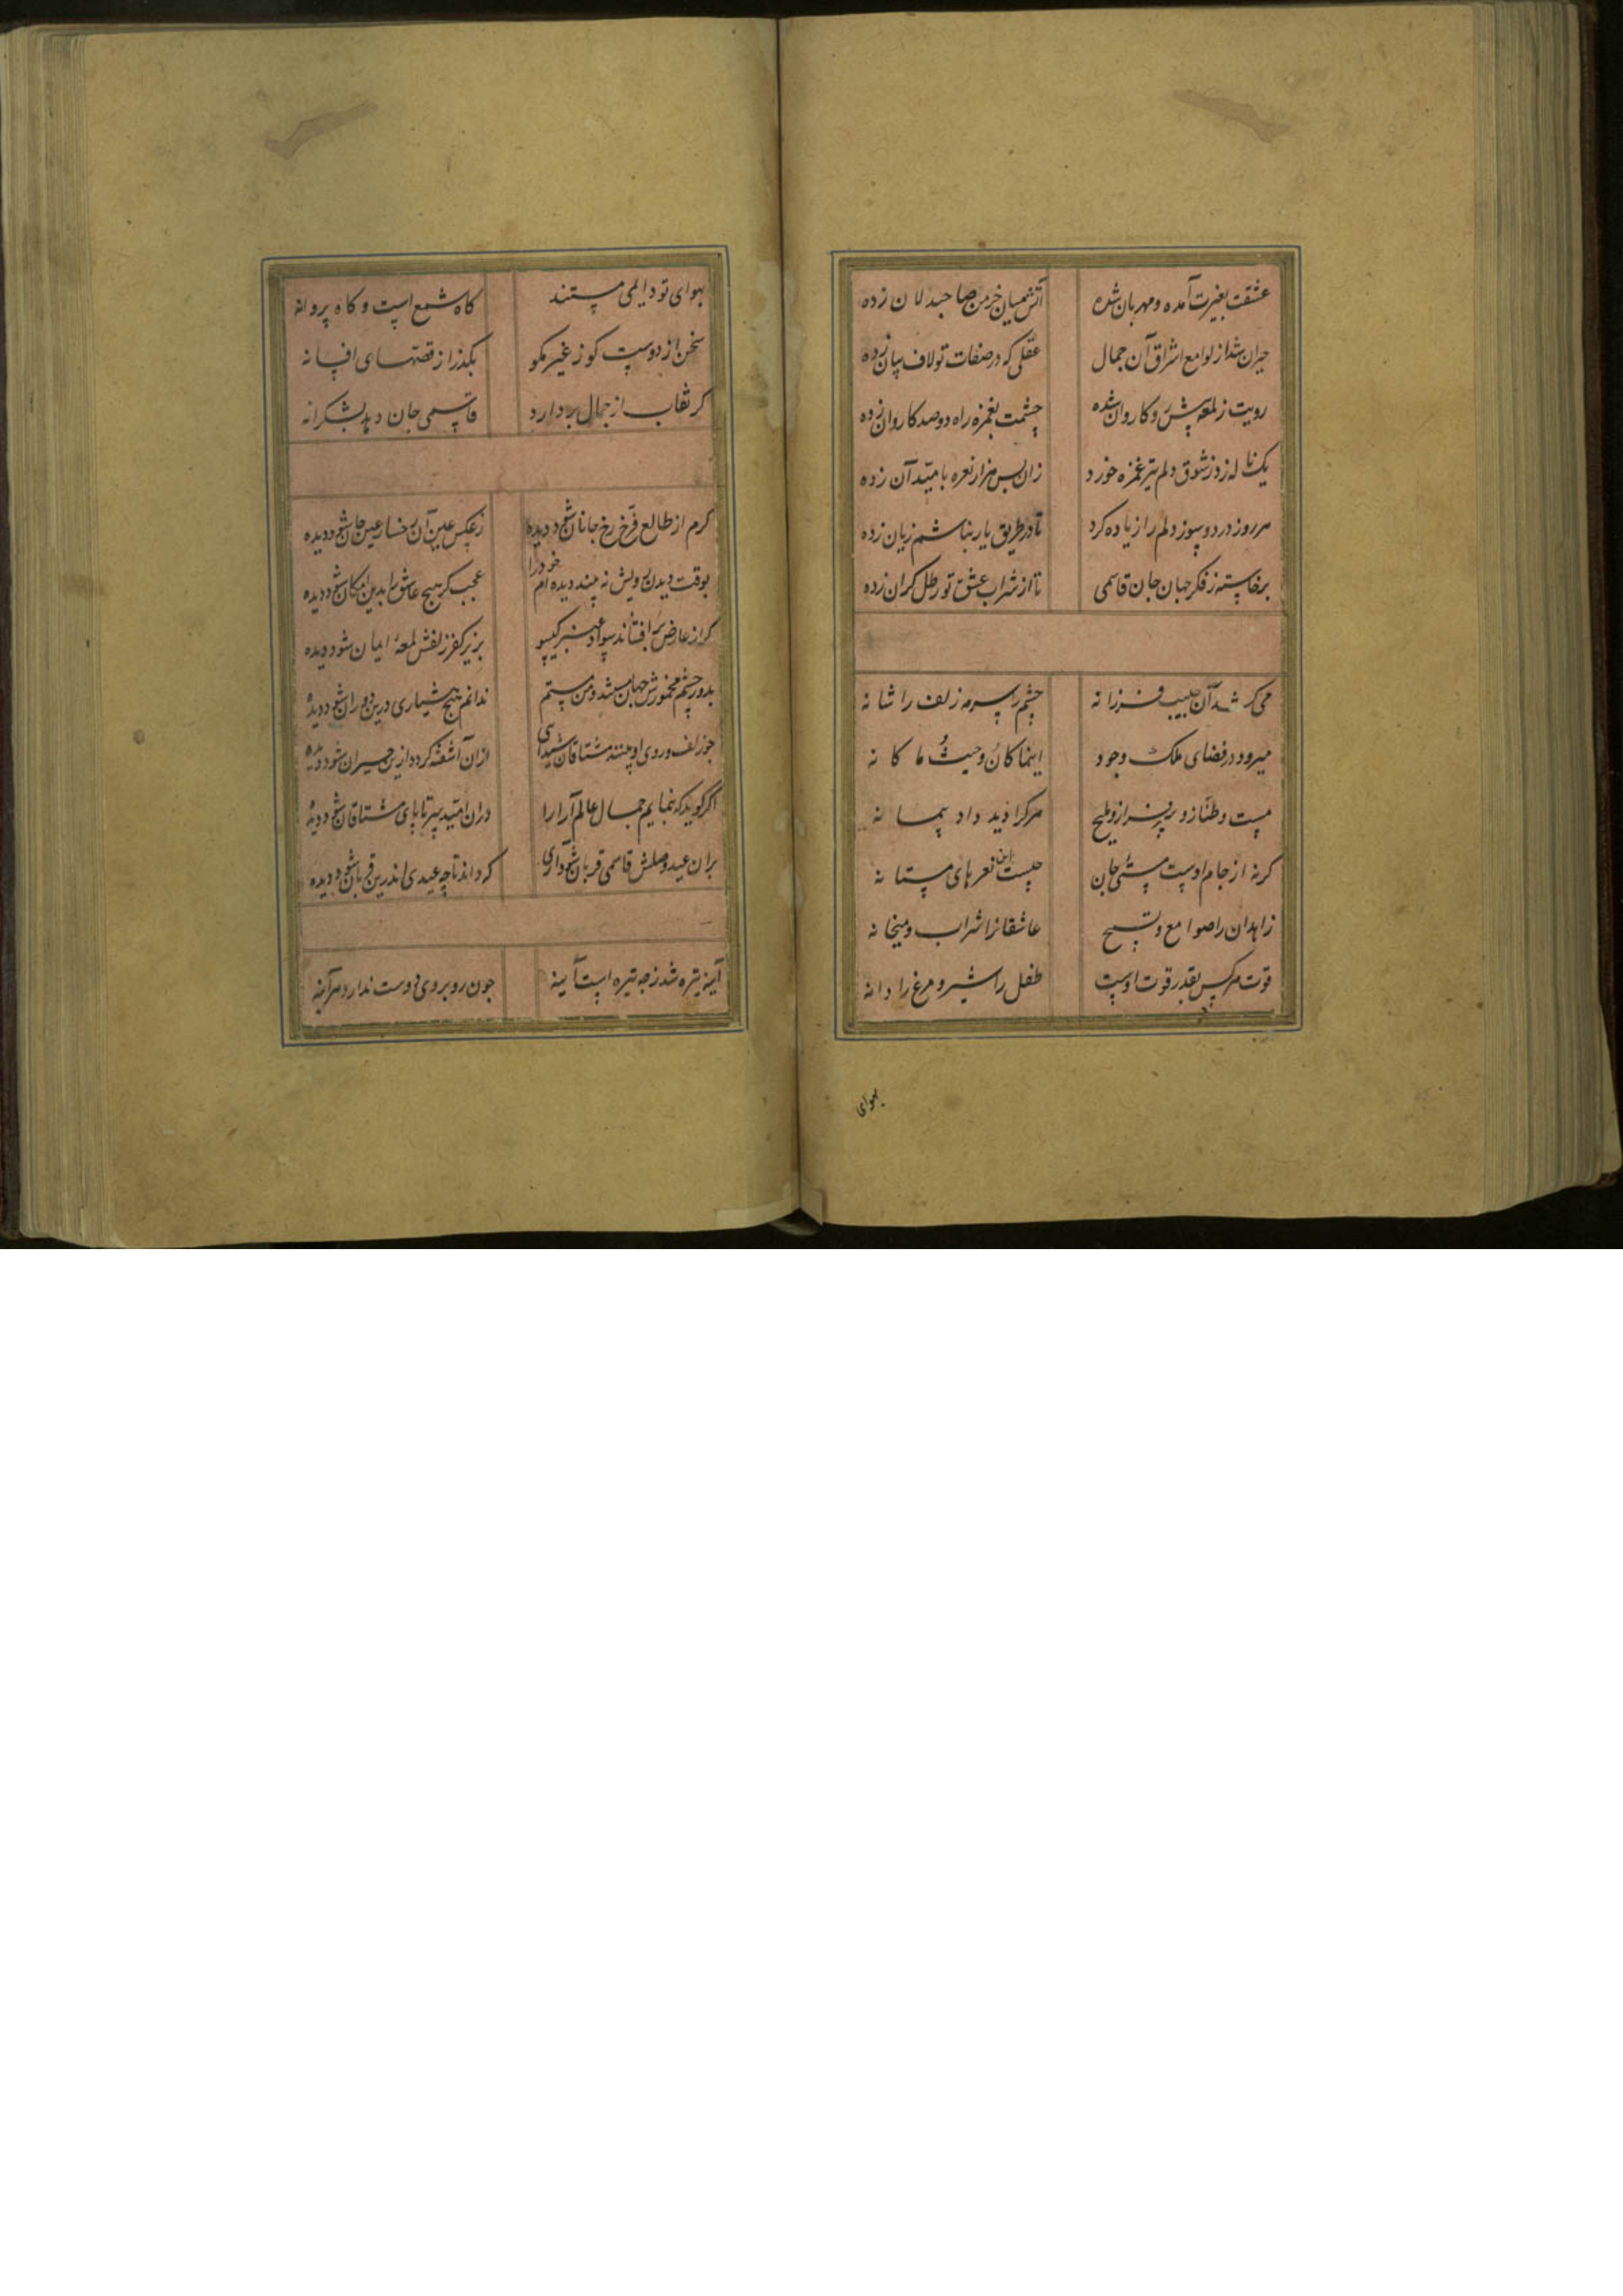 عشقت بغیرت آمده و مهربان شده آتش میان خرمن صاحبدلان زده
حیران شد از لوامع اشراق آن جمال عقلی که در صفات تو لاف بیان زده
رویت ز لمعه پیش رو کاروان شده چشمت بغمزه راه دو صد کاروان زده
یک ناله زد ز شوق دلم تیر غمزه خورد زان پس هزار نعره بامید آن زده
هر روز درد و سوز دلم را زیاده کرد تا در طریق یار نباشم زیان زده
برخاسته ز فکر جهان جان قاسمی تا از شراب عشق تو رطل کران زده
می کشد آن حبیب فرزانه چشم را سرمه زلف را شانه
میرود در فضای ملک وجود اینما کان و حیث ما کانه
مست و طناز و سرفراز و ملیح هر کرا دید داد پیمانه
کر نه از جام اوست مستی جان چیست این نعرهای مستانه
زاهدان را صوامع و تسبیح عاشقانرا شراب و میخانه
قوت هر کس بقدر قوت اوست طفل را شیر و مرغ را دانه
بهوای
بهوای تو دایمی مستند کاه شمع است و کاه پروانه
سخن از دوست کو ز غیر مکو بکذر از قصتهای افسانه
کر نقاب از جمال بردارد قاسمی جان دهد بشکرانه
کرم از طالع فرخ رخ جانان شود دیده ز عکس عین آن رخسار عین جان شود دیده
بوقت دیدن رویش نه بیند دیده ام خود را عجب کر هیچ عاشق را بدین امکان شود دیده
کر از عارض بر افشاند سواد عنبر کیسو بزیر کفر زلفش لمعهٔ ایمان شود دیده
بدور چشم مخمورش جهان مست شد و من مستم ندانم هیچ هشیاری درین دوران شود دیده
چو زلف و روی او بینند مشتاقان شیدای از ان آشفته کردد ازین حیران شود دیده
اکر کوید که بنمایم جمال عالم آرا را در ان امید سر تا پای مشتاقان شود دیده
بر ان عید وصلش قاسمی قربان شود آری که داند تا چه عیدی اندرین قربان شود دیده
آینه تیره شد ز چه تیره است آینه چون رو بروی دوست ندارد هر آینه